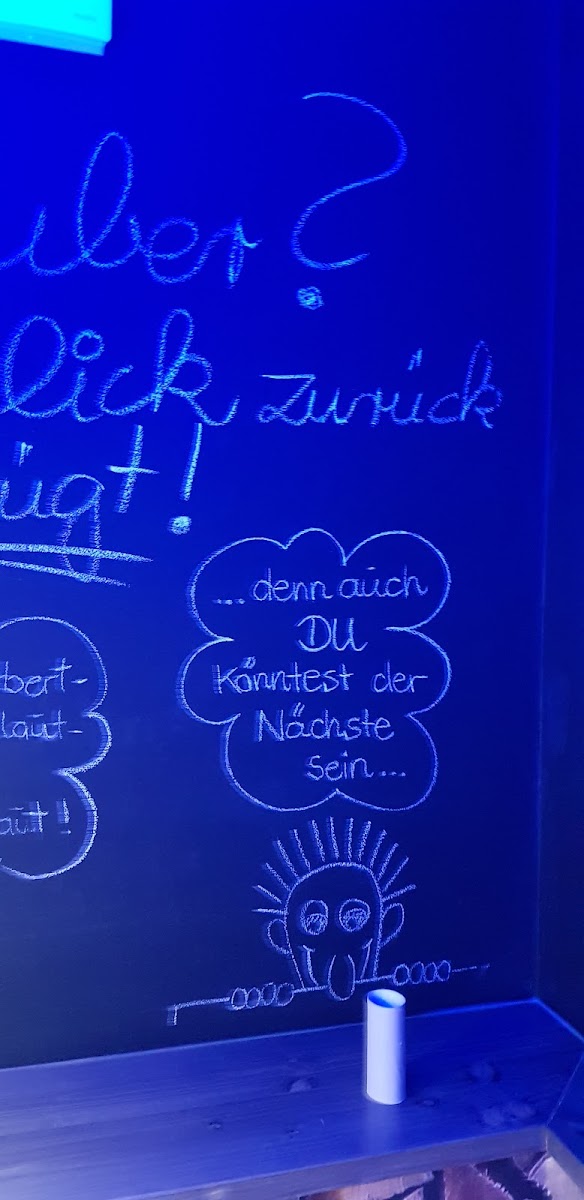 uber?
lick zurück
ügt!
... denn auch
DU
könntest der
Nächste
sein...
bert-
laut-
aut!